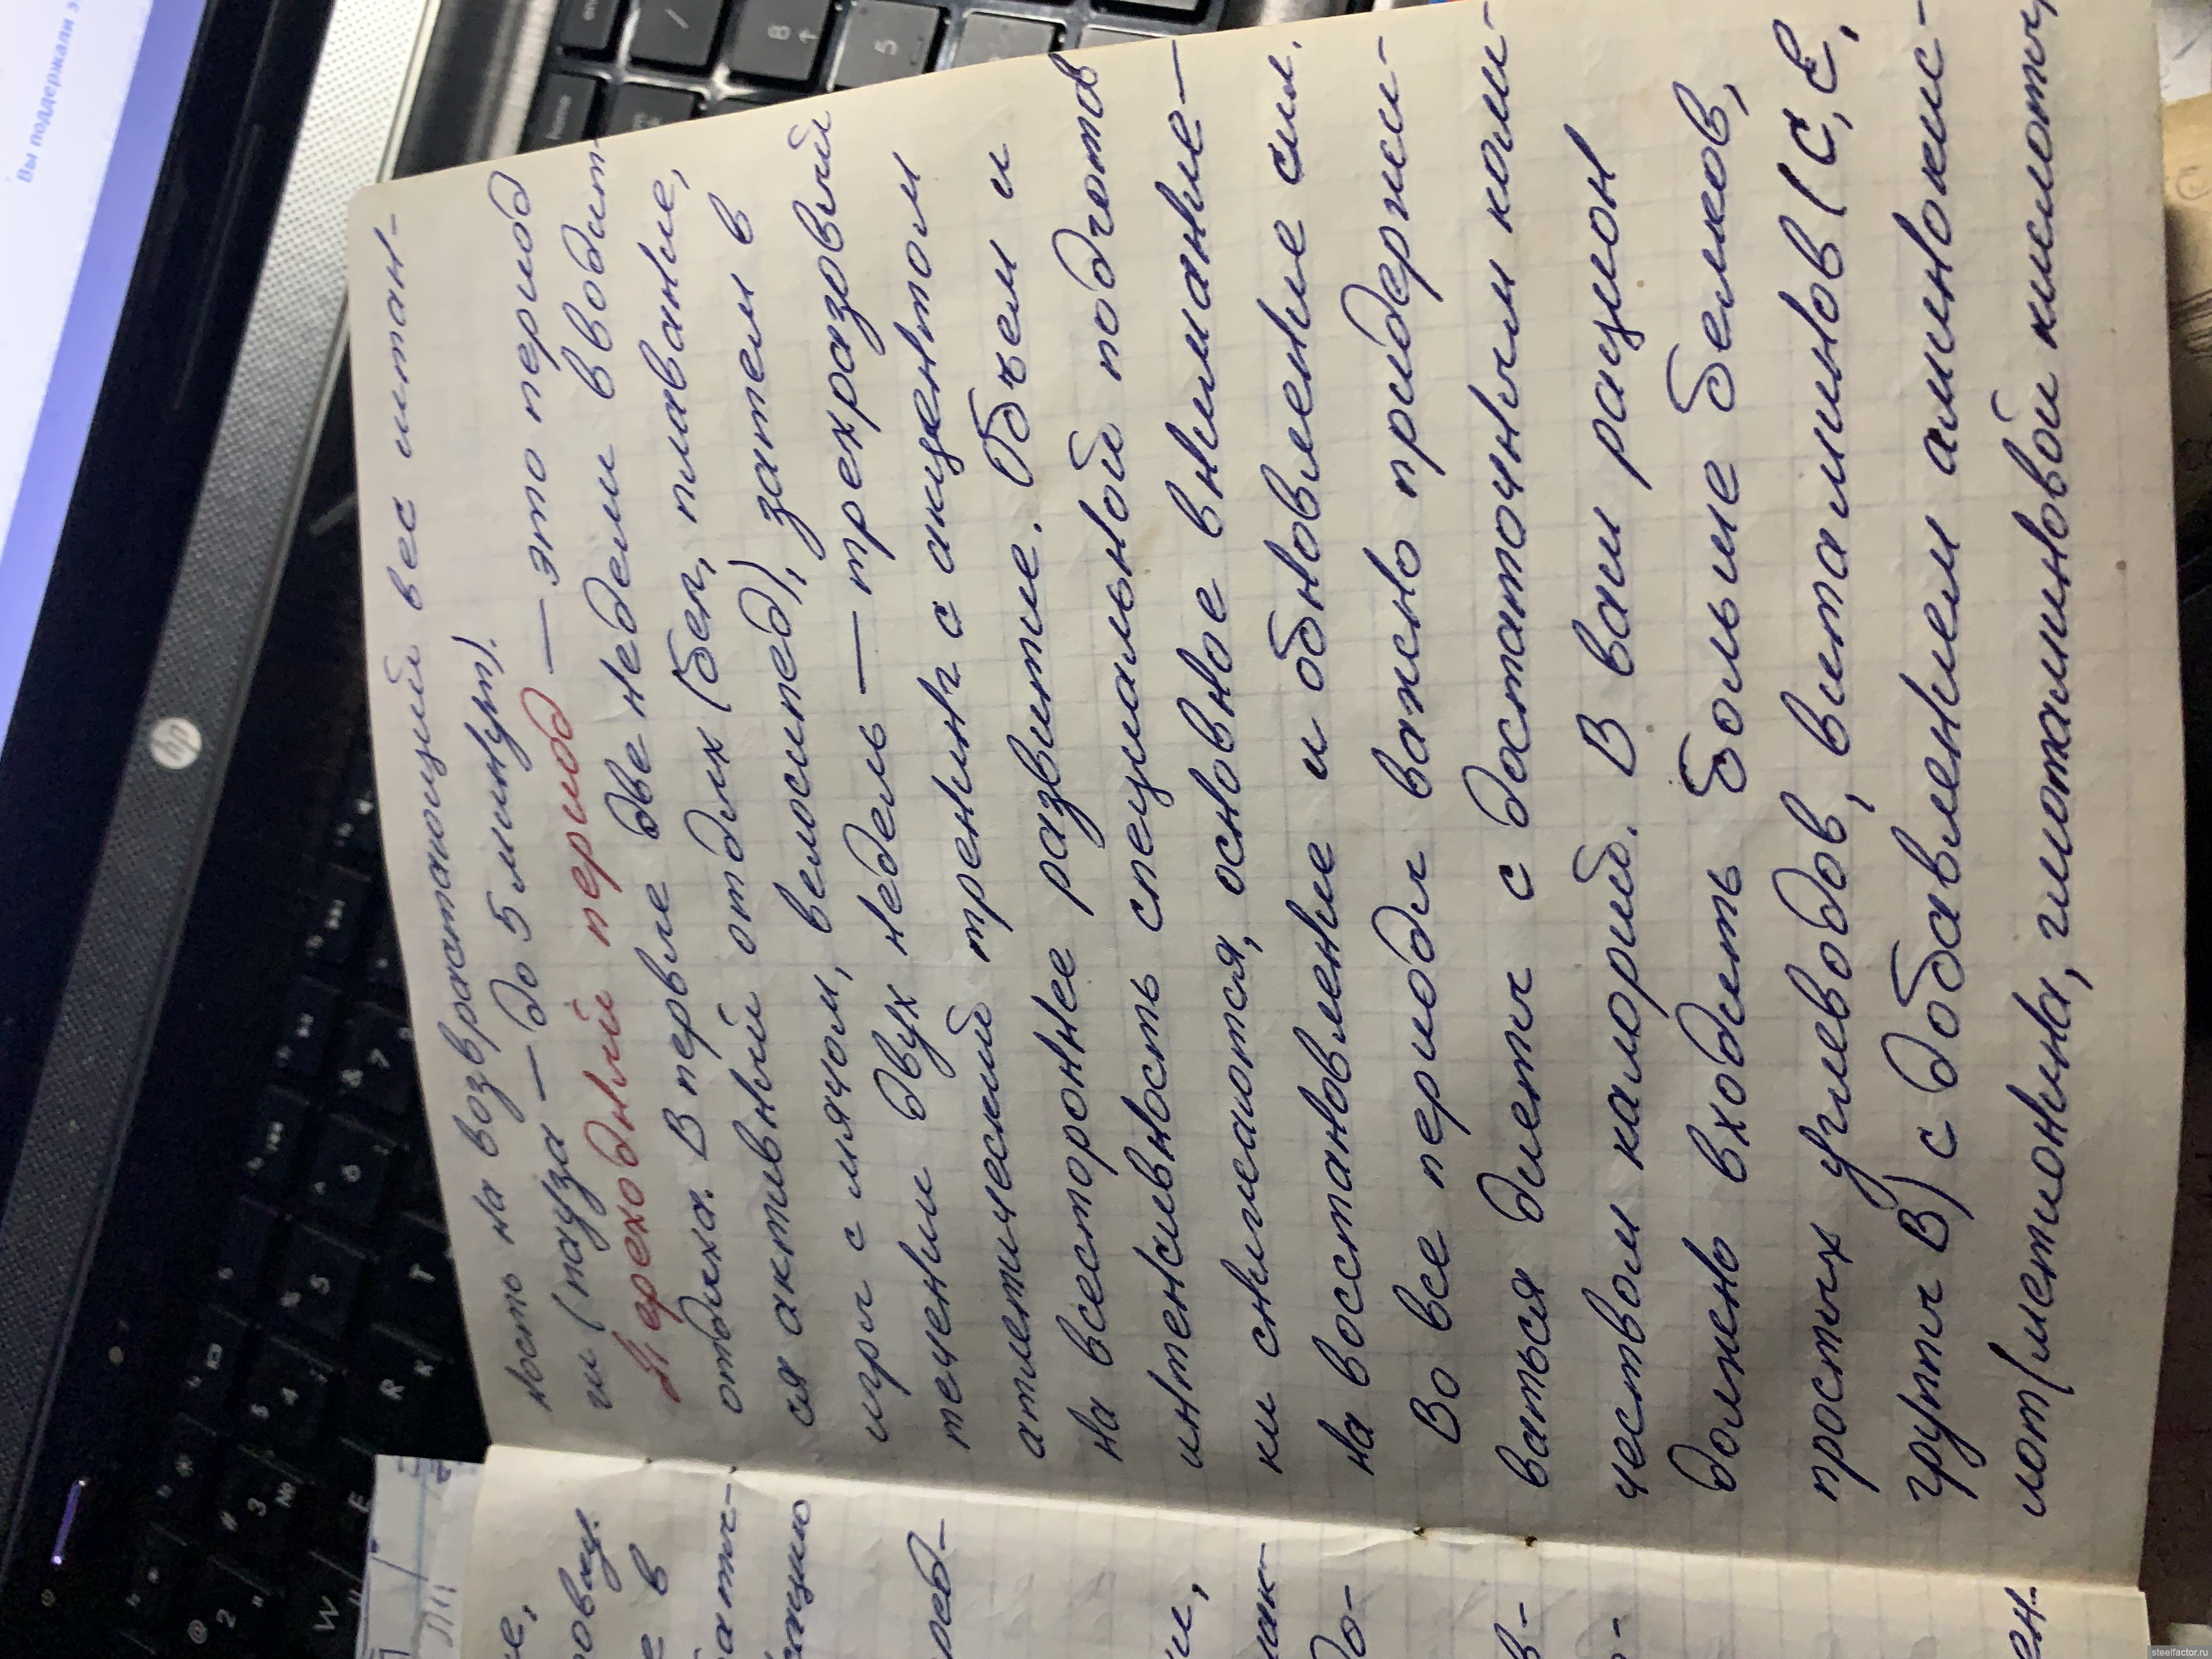 ность на возврастающий вес штан-
ги (пауза — до 5 минут).
Переходный период — это период
отдыха. В первые две недели вводит-
ся активный отдых (бег, плавание,
игры с мячом, велосипед), затем в
течении двух недель — трехразовый
атлетический тренинг с акцентом
на всестороннее развитие. Объем и
интенсивность специальной подготов
ки снижаются, основное внимание —
на восстановление и обновление сил.
Во все периоды важно придержи-
ваться диеты с достаточным коли-
чеством калорий. В ваш рацион
должно входить больше белков,
простых углеводов, витаминов (С, Е,
группы В) с добавлением аминокис-
лот (метионина, глютаминовой кислоты,
Вы поддержали
hp
steelfactor.ru